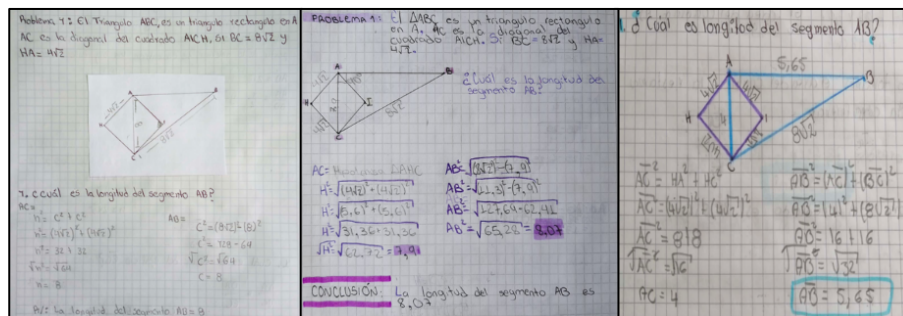 Problema 1: El Triangulo ABC, es un triangulo rectangulo en A
AC es la diagonal del cuadrado AICH, si BC = 8√2 y
HA = 4√2
A
C
8
8√2
1. ¿Cuál es la longitud del segmento AB?
AC =
h² = c² + c²
h² = (4√2)² + (4√2)²
h² = 32 + 32
√h² = √64
h = 8
AB =
C² = (8√2)² (8)²
C² = 128 - 64
√C² = √64
C = 8
la longitud del segmento AB = 8
PROBLEMA 1: El ΔABC es un triángulo rectangulo
en A. AC es la diagonal del
cuadrado AICH. Si BC = 8√2 y HA =
4√2.
¿Cuál es la longitud del
segmento AB?
A
H
I
4√2
4√2
8√2
AC = Hipotenusa ΔAHC
H² = √(4√2)² + (4√2)²
H² = √(5,6)² + (5,6)²
H² = √31,36 + 31,36
√H² = √62,72 = 7,91
AB² = √(8√2)² - (7,9)²
AB² = √(11,3)² - (7,9)²
AB² = √127,69 - 62,41
AB² = √65,28 = 8,07
CONCLUSIÓN: La longitud del segmento AB es
8,07
1. ¿Cuál es longitod del segmento AB?
A
5,65
B
4√2
4√2
H
4
I
8√2
C
AC² = HA² + HC²
AC² = (4√2)² + (4√2)²
AC² = 8 8
√AC² = √16
AC = 4
AB² = (AC)² + (BC)²
AB² = (4)² + (8√2)²
AB² = 16 + 16
√AB² = √32
AB = 5,65